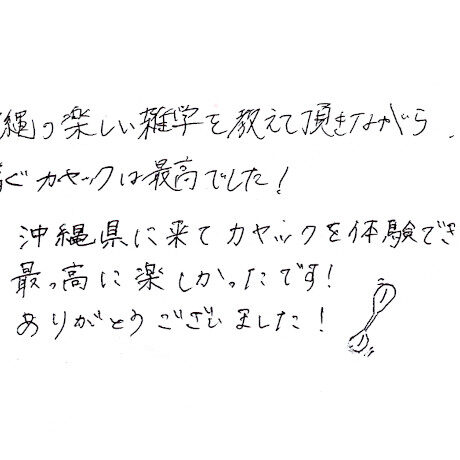 縄の楽しい雑学を教えて頂きながら
ぐカヤックは最高でした!
沖縄県に来てカヤックを体験でき
最っ高に楽しかったです!
ありがとうございました!